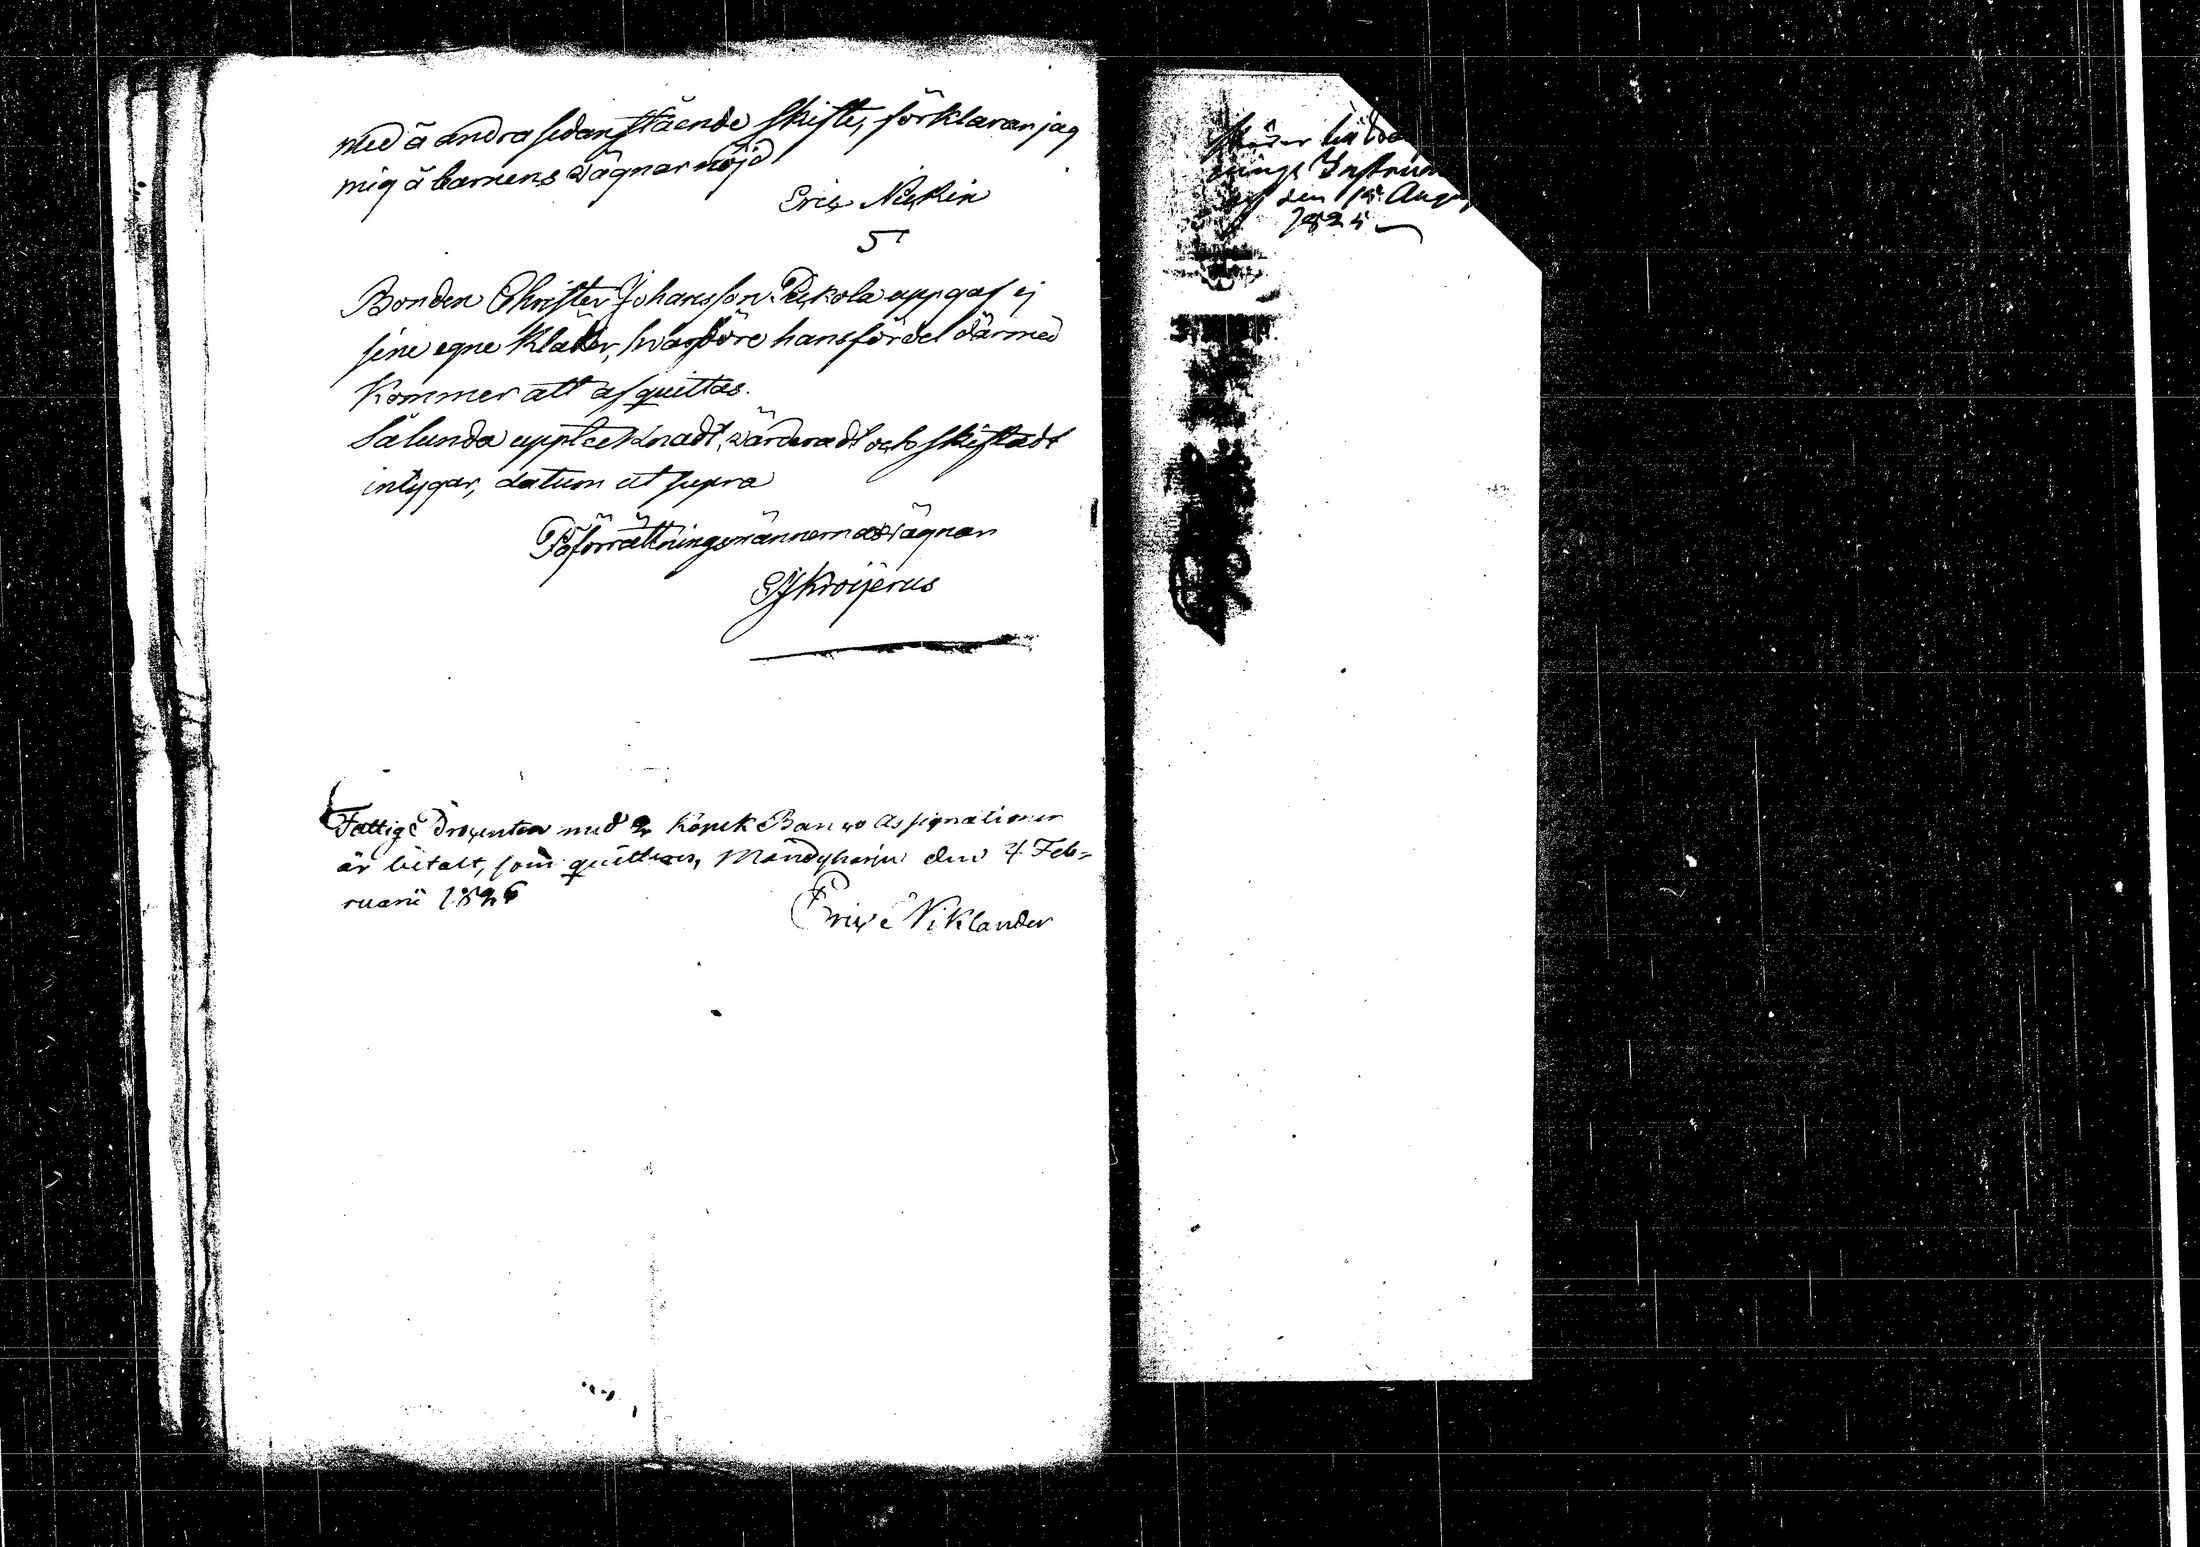 med å andra sedan stående skifte, förklarar jag
mig å barnens wägnar nöjd
Eric Niskin
5
Bonden Christer Johansson Peskola uppgaf ej
sine egne Kläder, hwarföre hans fördel därmed
Kommer att afquittas.
Sålunda upptecknadt, wärderadt och skiftadt
intygar, datum ut supra
På förrättningsmännernas wägnar
Kroijerus
Fattige Procenten med 2 Kopek Banco Assignationer
är betalt, som quitteras, Mändyharju den 4 Feb=
ruarii 1826
Eric Niklander
den 15 Aug
1825